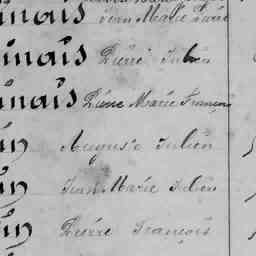 inais Jean Marie Pierre
inais Pierre Julien
inais Pierre Marie François
in Auguste Julien
in Jean Marie Julien
in Pierre François